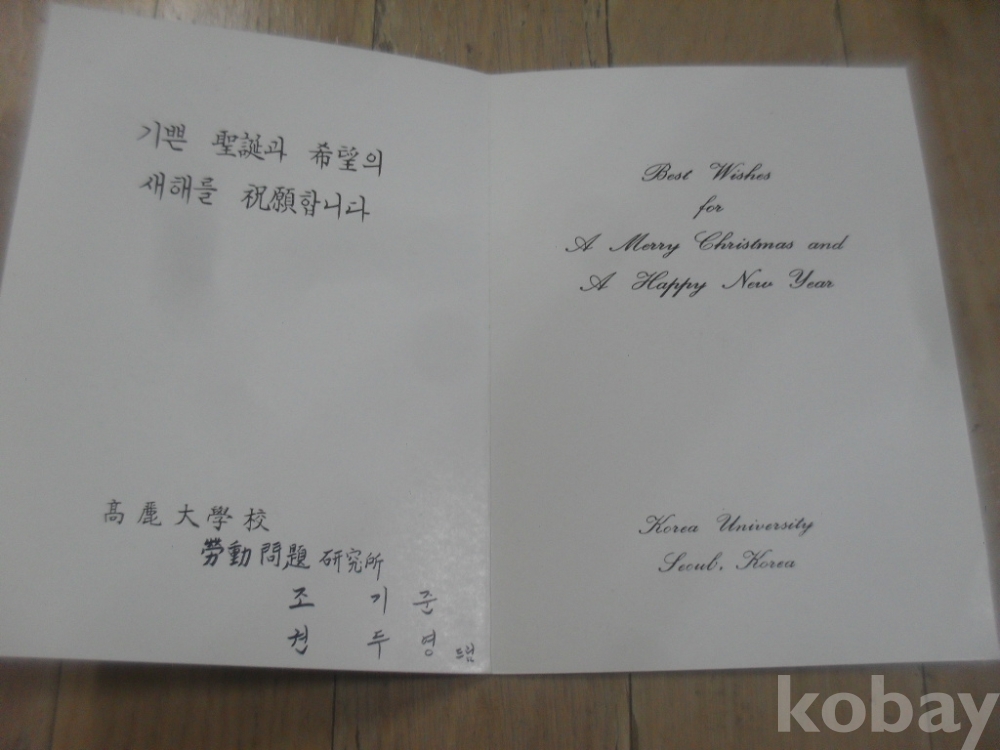 기쁜 聖誕과 希望의
새해를 祝願합니다
高麗大學校
勞動問題 研究所
조 기 준
권 두 영 드림
Best Wishes
for
A Merry Christmas and
A Happy New Year
Korea University
Seoul, Korea
kobay